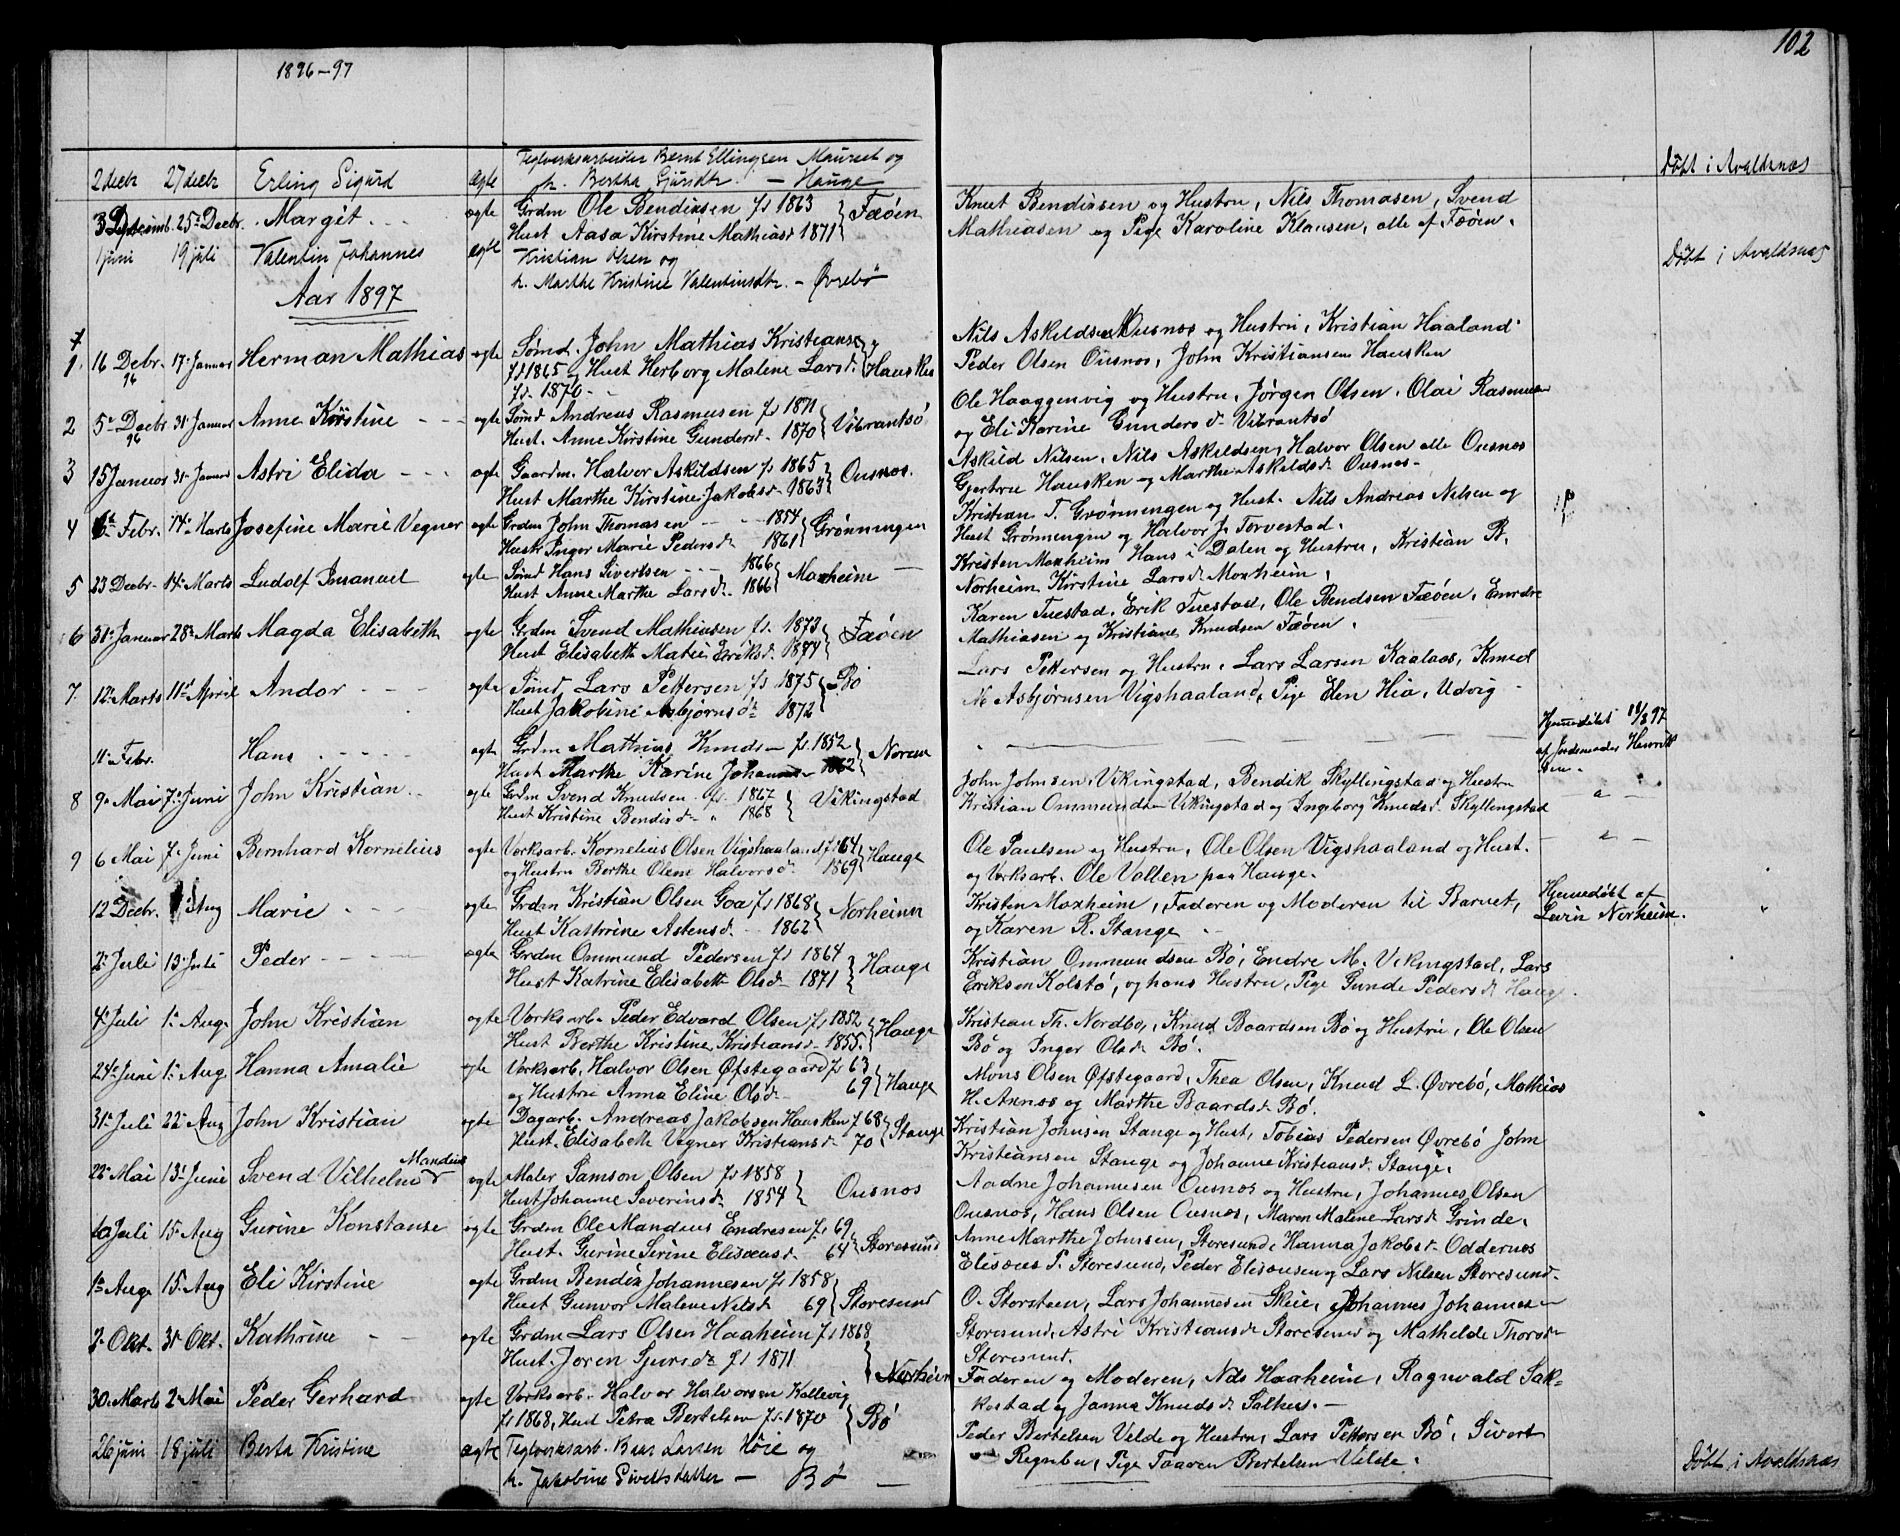 102
1896-97
2 decbr 27 decbr Erling Sigurd ægte Teglverksarbeider Bernt Ellingsen Mauret og
h. Bertha Sjursdtr. — Hauge
Døbt i Avaldsnæs
25 Decbr. Margit ægte Grdm Ole Bendiksen fd 1863
Hust Aasa Kirstine Mathiasd 1871 } Fæøen
Knut Bendiksen og Hustru, Nils Thomasen, Svend
Mathiasen og Pige Karoline Klausen, alle af Fæøen.
1 juni 19 juli Valentin Johannes ægte Kristian Olsen og
h. Marthe Kristine Valentinsdtr. - Øvrebø
Døbt i Avaldsnæs
Aar 1897
1 16 Debr. 96 17 Januar Herman Mathias ægte Sømd. John Mathias Kristianse
fd 1865 og Hust Herborg Malene Larsd.
fd. 1870 } Hausken
Nils Askildsen Ousnos og Hustru, Kristian Haaland
Peder Olsen Ousnos, John Kristiansen Hausken
2 5 Decbr 96 31 Januar Anne Kirstine ægte Sømd Andreas Rasmusen fd 1871
Hust. Anne Kirstine Gundersd. 1870 } Vibrantsø
Ole Haaggenvig og Hustru, Jørgen Olsen, Olai Rasmusen
og Eli Karine Gundersd Vibrantsø
3 15 Januar 31 Januar Astri Elida ægte Gaardm. Halvor Askildsen fd 1865
Hust Marthe Kirstine Jakobsd. 1863 } Ousnos.
Askild Nilsen, Nils Askildsen, Halvor Olsen alle Ousnos
Gjertru Hausken og Marthe Askildsd. Ousnos
4 Febr. 14 Marts Josefine Marie Vegner ægte Grdm John Thomasen 1854
Hustr Inger Marie Pedersd 1861 } Grønningen
Kristian T. Grønningen og Hust. Nils Andreas Nilsen og
Hust Grønningen og Halvor J. Torvestad.
5 23 Decbr 14 Marts Ludolf Imanuel ægte Sømd Hans Sivertsen 1866
Hust Anne Marthe Larsd. 1866 } Moxheim
Kristen Moxheim, Hans i Dalen og Hustru, Kristian R.
Norheim, Kirstine Larsd. Moxheim,
6 31 Januar 28 Marts Magda Elisabeth ægte Grdm Svend Mathiasen fd. 1873
Hust Elisabeth Matie Eriksd. 1874 } Fæøen
Karen Tuestad, Erik Tuestad, Ole Bendsen Fæøen, Endre
Mathiasen og Kristiane Knudsen Fæøen.
7 12 Marts 11 April Andor ægte Sømd Lars Pettersen fd 1875
Hust Jakobine Asbjørnsd 1872 } Bø
Lars Pettersen og Hustru, Lars Larsen Kaalaas, Knud
M Asbjørnsen Vigshaaland, Pige Elen Hia, Udvig
11 Febr. Hans ægte Grdm Mathias Knudsen fd. 1852
Hust Marthe Karine Johannes 1862 } Noreim
Hjemmedøbt 97
af Jordemoder Henrik
sen.
8 9 Mai 7 Juni John Kristian ægte Grdm Svend Knudsen fd. 1867
Hust Kristine Bendisd " 1868 } Vikingstad
John Johnsen Vikingstad, Bendik Skyllingstad og Hustru
Kristian Ommundsen Vikingstad og Ingeborg Knudsd. Skyllingstad
9 6 Mai 7 Juni Bernhard Kornelius ægte Verksarb. Kornelius Olsen Vigshaaland fd 64
og Hustru Berthe Olene Halvorsd. 1869 } Hauge
Ole Paulsen og Hustru, Ole Olsen Vigshaaland og Hust.
og Verksarb. Ole Vallen paa Hauge.
12 Decbr. Aug Marie ægte Grdm Kristian Olsen Goa fd 1868
Hust Kathrine Astensd. 1862 } Norheim
Kristen Moxheim, Faderen og Moderen til Barnet,
og Karen R. Stange
Hjemmedøbt af
Lavin Norheim.
2 Juli 13 Juli Peder ægte Grdm Ommund Pedersen fd 1864
Hust Katrine Elisabeth Olsd 1871 } Hauge
Kristian Ommundsen Bø, Endre M. Vikingstad, Lars
Eriksen Kolstø, og hans Hustru, Pige Gunde Pedersd Hauge.
4 Juli 1 Aug. John Kristian ægte Verksarb. Peder Edvard Olsen fd 1852
Hust Berthe Kristine Kristiansd. 1855. } Hauge
Kristian Th. Nordbø, Knud Baardsen Bø og Hustru, Ole Olsen
Bø og Inger Olsd. Bø.
24 Juni 1 Aug Hanna Amalie ægte Verksarb. Halvor Olsen Øfstegaard fd 63
og Hustru Anna Eline Olsd 69 } Hauge
Mons Olsen Øfstegaard, Thea Olsen, Knud L. Øvrebø, Mathias
H. Annos og Marthe Baardsd. Bø.
31 Juli 22 Aug John Kristian ægte Dagarb. Andreas Jakobsen Hausken f 68
Hust. Elisabeth Vegner Kristiansd 70 } Stange
Kristian Johnsen Stange og Hust, Tobias Pedersen Øvrebø John
Kristiansen Stange og Johanne Kristiansd. Stange.
22 Mai 13 Juni Svend Vilhelm Mandius ægte Maler Samson Olsen fd 1858
Hust Johanne Severinsd 1854 } Ousnos
Aadne Johannesen Ousnos og Hustru, Johannes Olsen
Ousnos, Hans Olsen Ousnos, Maren Malene Larsd. Grinde.
10 Juli 15 Aug Gurine Konstanse ægte Grdm Ole Mandius Endresen fd 69
Hust. Gurine Serine Eliseusd. 64 } Storesund
Anne Marthe Johnsen, Storesund, Hanna Jakobsd. Oddernes
Eliseus P. Storesund, Peder Eliseusen og Lars Nilsen Storesund.
1 Aug. 15 Aug Eli Kirstine ægte Grdm Bendix Johannesen fd 1858
Hust Gunvor Malene Nilsd 69 } Storesund
O. Storsteen, Lars Johannesen Skeie, Johannes Johannes
Storesund, Astri Kristiansd Storesund og Mathilde Thorsd
Storesund.
2 Okt. 31 Okt. Kathrine ægte Grdm Lars Olsen Haaheim fd 1868
Hust. Joren Sjursd fd 1871 } Norheim
Faderen og Moderen, Nils Haaheim, Ragnvald Sak-
kestad og Janna Knudsd Salhus.
30 Marts 2 Mai Peder Gerhard ægte Verksarb. Halvor Halvorsen Kallevig
fd 1868, Hust Petra Bertelsen fd. 1870 } Bø
Peder Bertelsen Velde og Hustru, Lars Pettersen Bø, Sivert
Pige Taaren Bertelsen Velde.
26 juni 18 juli Berta Kristine ægte Teglverksarb. Baar Larsen Høie og
h. Jakobine Sivertsdatter — Bø
Døbt i Avaldsnæs